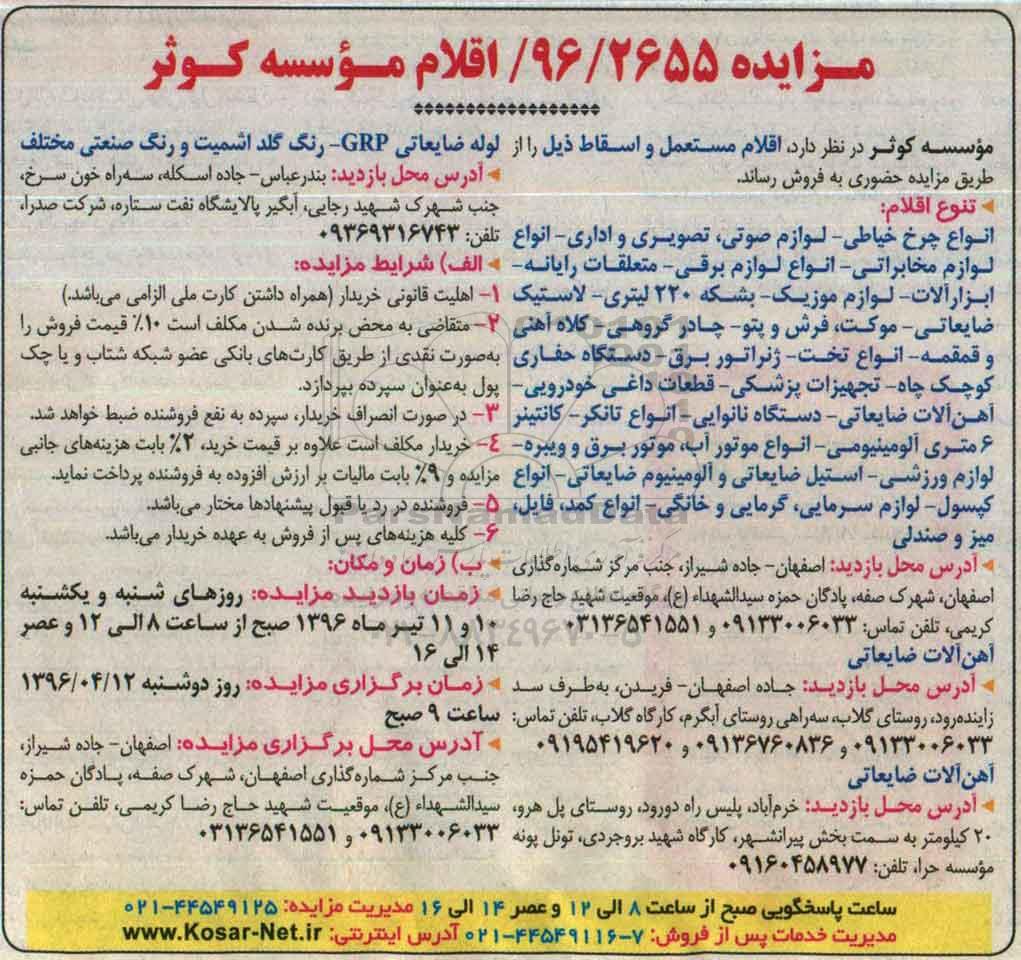 مزایده ۹۶/۲۶۵۵/ اقلام مؤسسه کوثر
مؤسسه کوثر در نظر دارد، اقلام مستعمل و اسقاط ذیل را از
طریق مزایده حضوری به فروش رساند.
تنوع اقلام:
انواع چرخ خیاطی- لوازم صوتی، تصویری و اداری- انواع
لوازم مخابراتی- انواع لوازم برقی- متعلقات رایانه-
ابزارآلات- لوازم موزیک- بشکه ۲۲۰ لیتری- لاستیک
ضایعاتی- موکت، فرش و پتو- چادر گروهی- کلاه آهنی
و قمقمه- انواع تخت- ژنراتور برق- دستگاه حفاری
کوچک چاه- تجهیزات پزشکی- قطعات داغی خودرویی-
آهن‌آلات ضایعاتی- دستگاه نانوایی- انواع تانکر- کانتینر
۶ متری آلومینیومی- انواع موتور آب، موتور برق و ویبره-
لوازم ورزشی- استیل ضایعاتی و آلومینیوم ضایعاتی- انواع
کپسول- لوازم سرمایی، گرمایی و خانگی- انواع کمد، فایل،
میز و صندلی
آدرس محل بازدید: اصفهان- جاده شیراز، جنب مرکز شماره‌گذاری
اصفهان، شهرک صفه، پادگان حمزه سیدالشهداء (ع)، موقعیت شهید حاج رضا
کریمی، تلفن تماس: ۰۹۱۳۳۰۰۶۰۳۳ و ۰۳۱۳۶۵۴۱۵۵۱
آهن‌آلات ضایعاتی
آدرس محل بازدید: جاده اصفهان- فریدن، به‌طرف سد
زاینده‌رود، روستای گلاب، سه‌راهی روستای آبگرم، کارگاه گلاب، تلفن تماس:
۰۹۱۳۳۰۰۶۰۳۳ و ۰۹۱۳۶۷۶۰۸۳۶ و ۰۹۱۹۵۴۱۹۶۲۰
آهن‌آلات ضایعاتی
آدرس محل بازدید: خرم‌آباد، پلیس راه دورود، روستای پل هرو،
۲۰ کیلومتر به سمت بخش پیرانشهر، کارگاه شهید بروجردی، تونل پونه
مؤسسه حرا، تلفن: ۰۹۱۶۰۴۵۸۹۷۷
لوله ضایعاتی GRP- رنگ گلد اشمیت و رنگ صنعتی مختلف
آدرس محل بازدید: بندرعباس- جاده اسکله، سه‌راه خون سرخ،
جنب شهرک شهید رجایی، آبگیر پالایشگاه نفت ستاره، شرکت صدرا،
تلفن: ۰۹۳۶۹۳۱۶۷۴۳
الف) شرایط مزایده:
۱- اهلیت قانونی خریدار (همراه داشتن کارت ملی الزامی می‌باشد.)
۲- متقاضی به محض برنده شدن مکلف است ۱۰٪ قیمت فروش را
به‌صورت نقدی از طریق کارت‌های بانکی عضو شبکه شتاب و یا چک
پول به‌عنوان سپرده بپردازد.
۳- در صورت انصراف خریدار، سپرده به نفع فروشنده ضبط خواهد شد.
۴- خریدار مکلف است علاوه بر قیمت خرید، ۲٪ بابت هزینه‌های جانبی
مزایده و ۹٪ بابت مالیات بر ارزش افزوده به فروشنده پرداخت نماید.
۵- فروشنده در رد یا قبول پیشنهادها مختار می‌باشد.
۶- کلیه هزینه‌های پس از فروش به عهده خریدار می‌باشد.
ب) زمان و مکان:
زمان بازدید مزایده: روزهای شنبه و یکشنبه
۱۰ و ۱۱ تیر ماه ۱۳۹۶ صبح از ساعت ۸ الی ۱۲ و عصر
۱۴ الی ۱۶
زمان برگزاری مزایده: روز دوشنبه ۱۳۹۶/۰۴/۱۲
ساعت ۹ صبح
آدرس محل برگزاری مزایده: اصفهان- جاده شیراز،
جنب مرکز شماره‌گذاری اصفهان، شهرک صفه، پادگان حمزه
سیدالشهداء (ع)، موقعیت شهید حاج رضا کریمی، تلفن تماس:
۰۹۱۳۳۰۰۶۰۳۳ و ۰۳۱۳۶۵۴۱۵۵۱
ساعت پاسخگویی صبح از ساعت ۸ الی ۱۲ و عصر ۱۴ الی ۱۶ مدیریت مزایده: ۰۲۱-۴۴۵۴۹۱۲۵
مدیریت خدمات پس از فروش: ۷-۰۲۱-۴۴۵۴۹۱۱۶ آدرس اینترنتی: www.Kosar-Net.ir
ParsNamadData